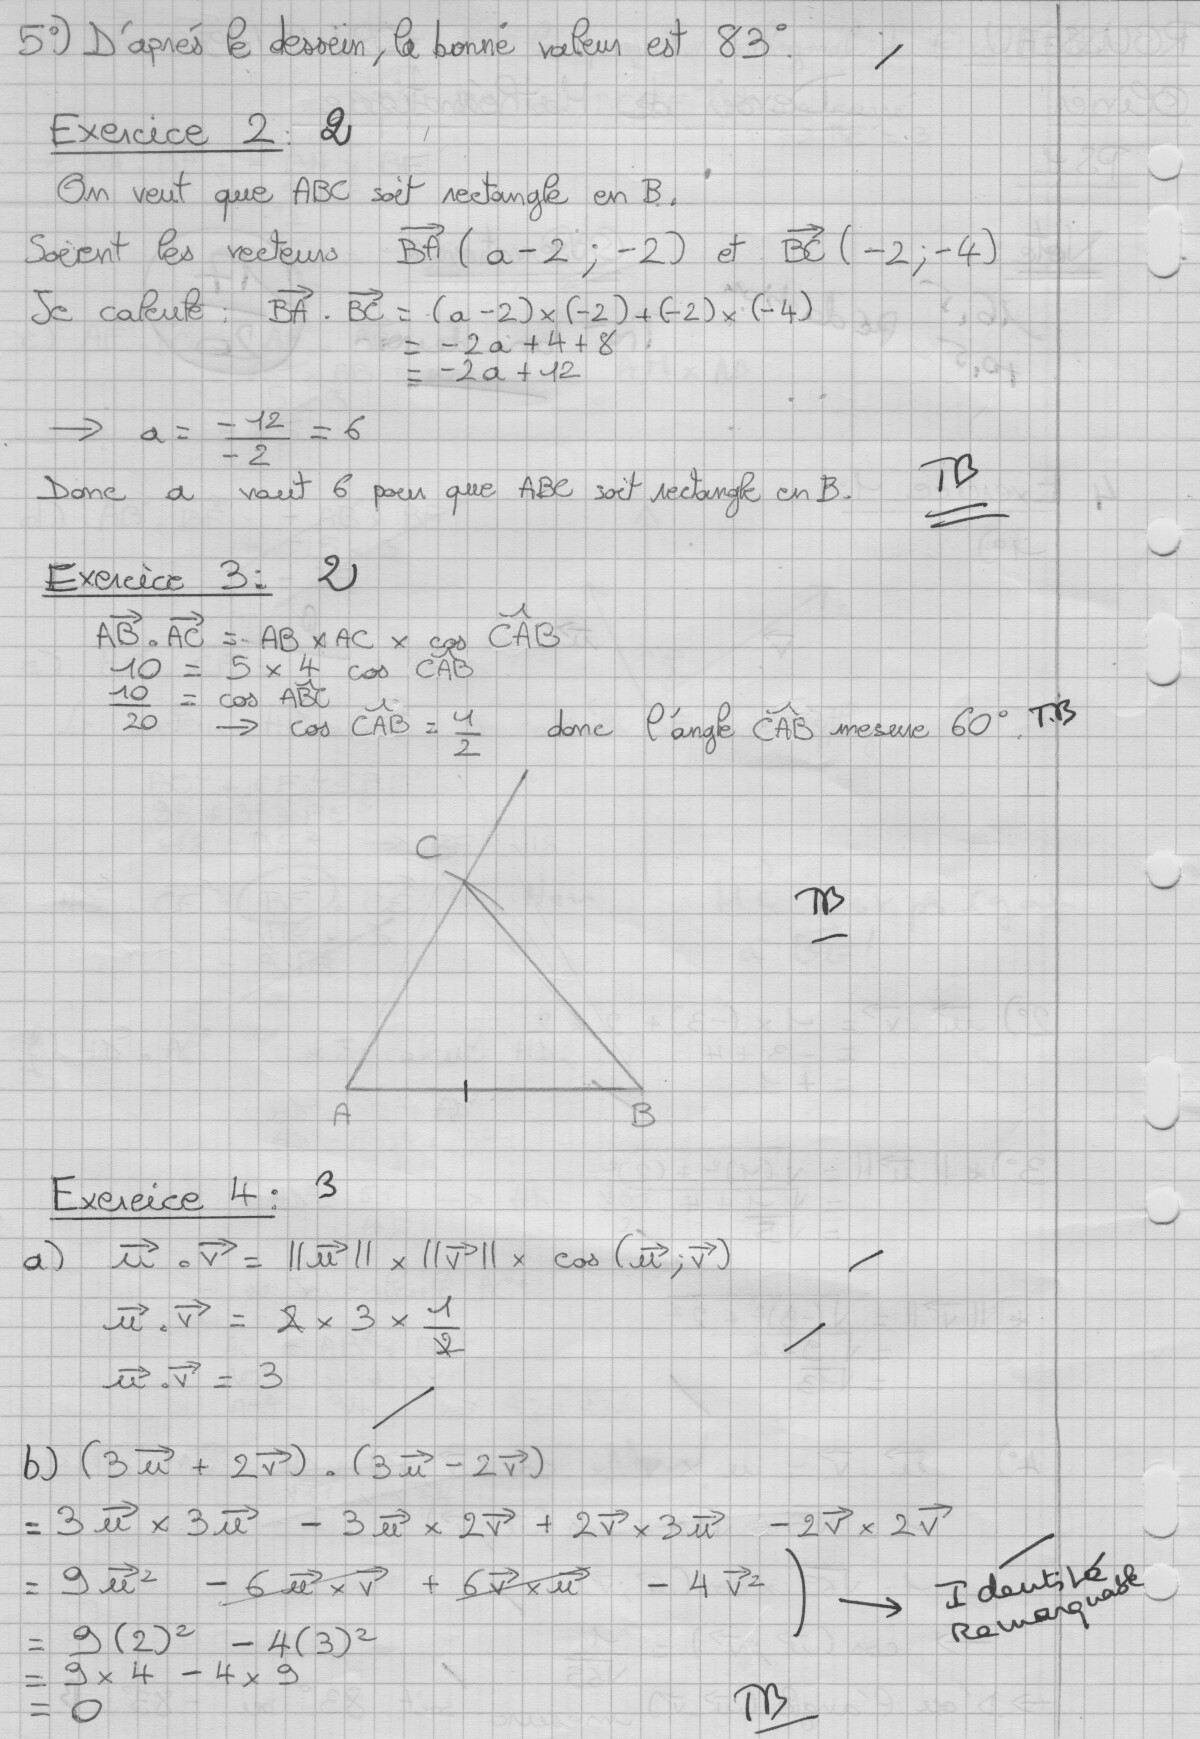 5°) D'après le dessein, la bonne valeur est 83°.
Exercice 2: 2
On veut que ABC soit rectangle en B.
Soient les vecteurs $\overrightarrow{BA}$ (a-2 ; -2) et $\overrightarrow{BC}$ (-2 ; -4)
Je calcule : $\overrightarrow{BA}$ . $\overrightarrow{BC}$ = (a-2)×(-2)+(-2)×(-4)
= -2a+4+8
= -2a+12
→ a = $\frac{-12}{-2}$ = 6
Donc a vaut 6 pour que ABC soit rectangle en B. TB
Exercice 3: 2
$\overrightarrow{AB}$ . $\overrightarrow{AC}$ = AB × AC × cos $\widehat{CAB}$
10 = 5 × 4 cos $\widehat{CAB}$
$\frac{10}{20}$ = cos $\widehat{ABC}$
→ cos $\widehat{CAB}$ = $\frac{1}{2}$ donc l'angle $\widehat{CAB}$ mesure 60°. T.B
C
TB
A B
Exercice 4: 3
a) $\vec{u}$ . $\vec{v}$ = ||$\vec{u}$|| × ||$\vec{v}$|| × cos ($\vec{u}$ ; $\vec{v}$)
$\vec{u}$ . $\vec{v}$ = 2 × 3 × $\frac{1}{2}$
$\vec{u}$ . $\vec{v}$ = 3
b) (3$\vec{u}$ + 2$\vec{v}$) . (3$\vec{u}$ - 2$\vec{v}$)
= 3$\vec{u}$ × 3$\vec{u}$ - 3$\vec{u}$ × 2$\vec{v}$ + 2$\vec{v}$ × 3$\vec{u}$ - 2$\vec{v}$ × 2$\vec{v}$
= 9$\vec{u}$² - 6$\vec{u}$ × $\vec{v}$ + 6$\vec{v}$ × $\vec{u}$ - 4$\vec{v}$² ) → Identité
Remarquable
= 9(2)² - 4(3)²
= 9 × 4 - 4 × 9
= 0
TB